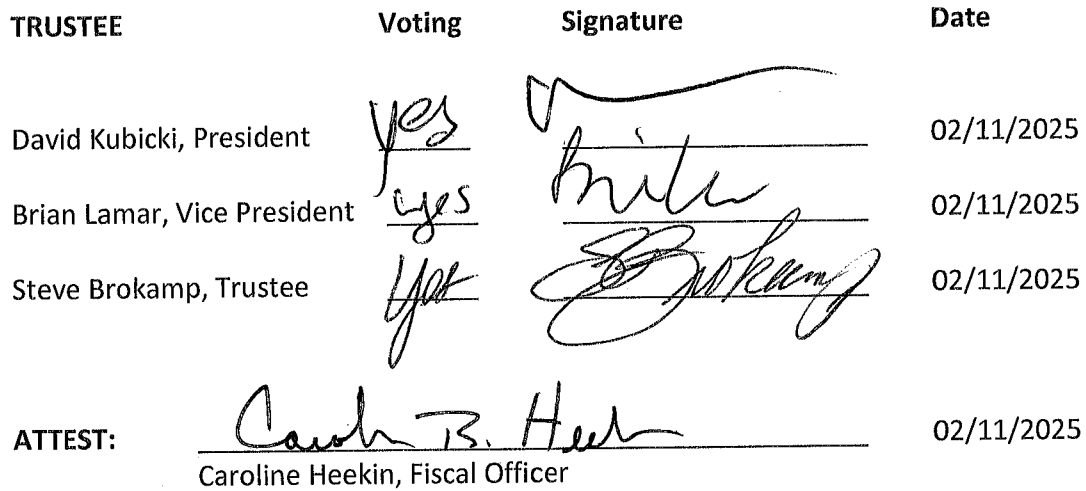 TRUSTEE Voting Signature Date
David Kubicki, President yes 02/11/2025
Brian Lamar, Vice President yes 02/11/2025
Steve Brokamp, Trustee yes S Brokamp 02/11/2025
ATTEST: Carol B. Heek 02/11/2025
Caroline Heekin, Fiscal Officer